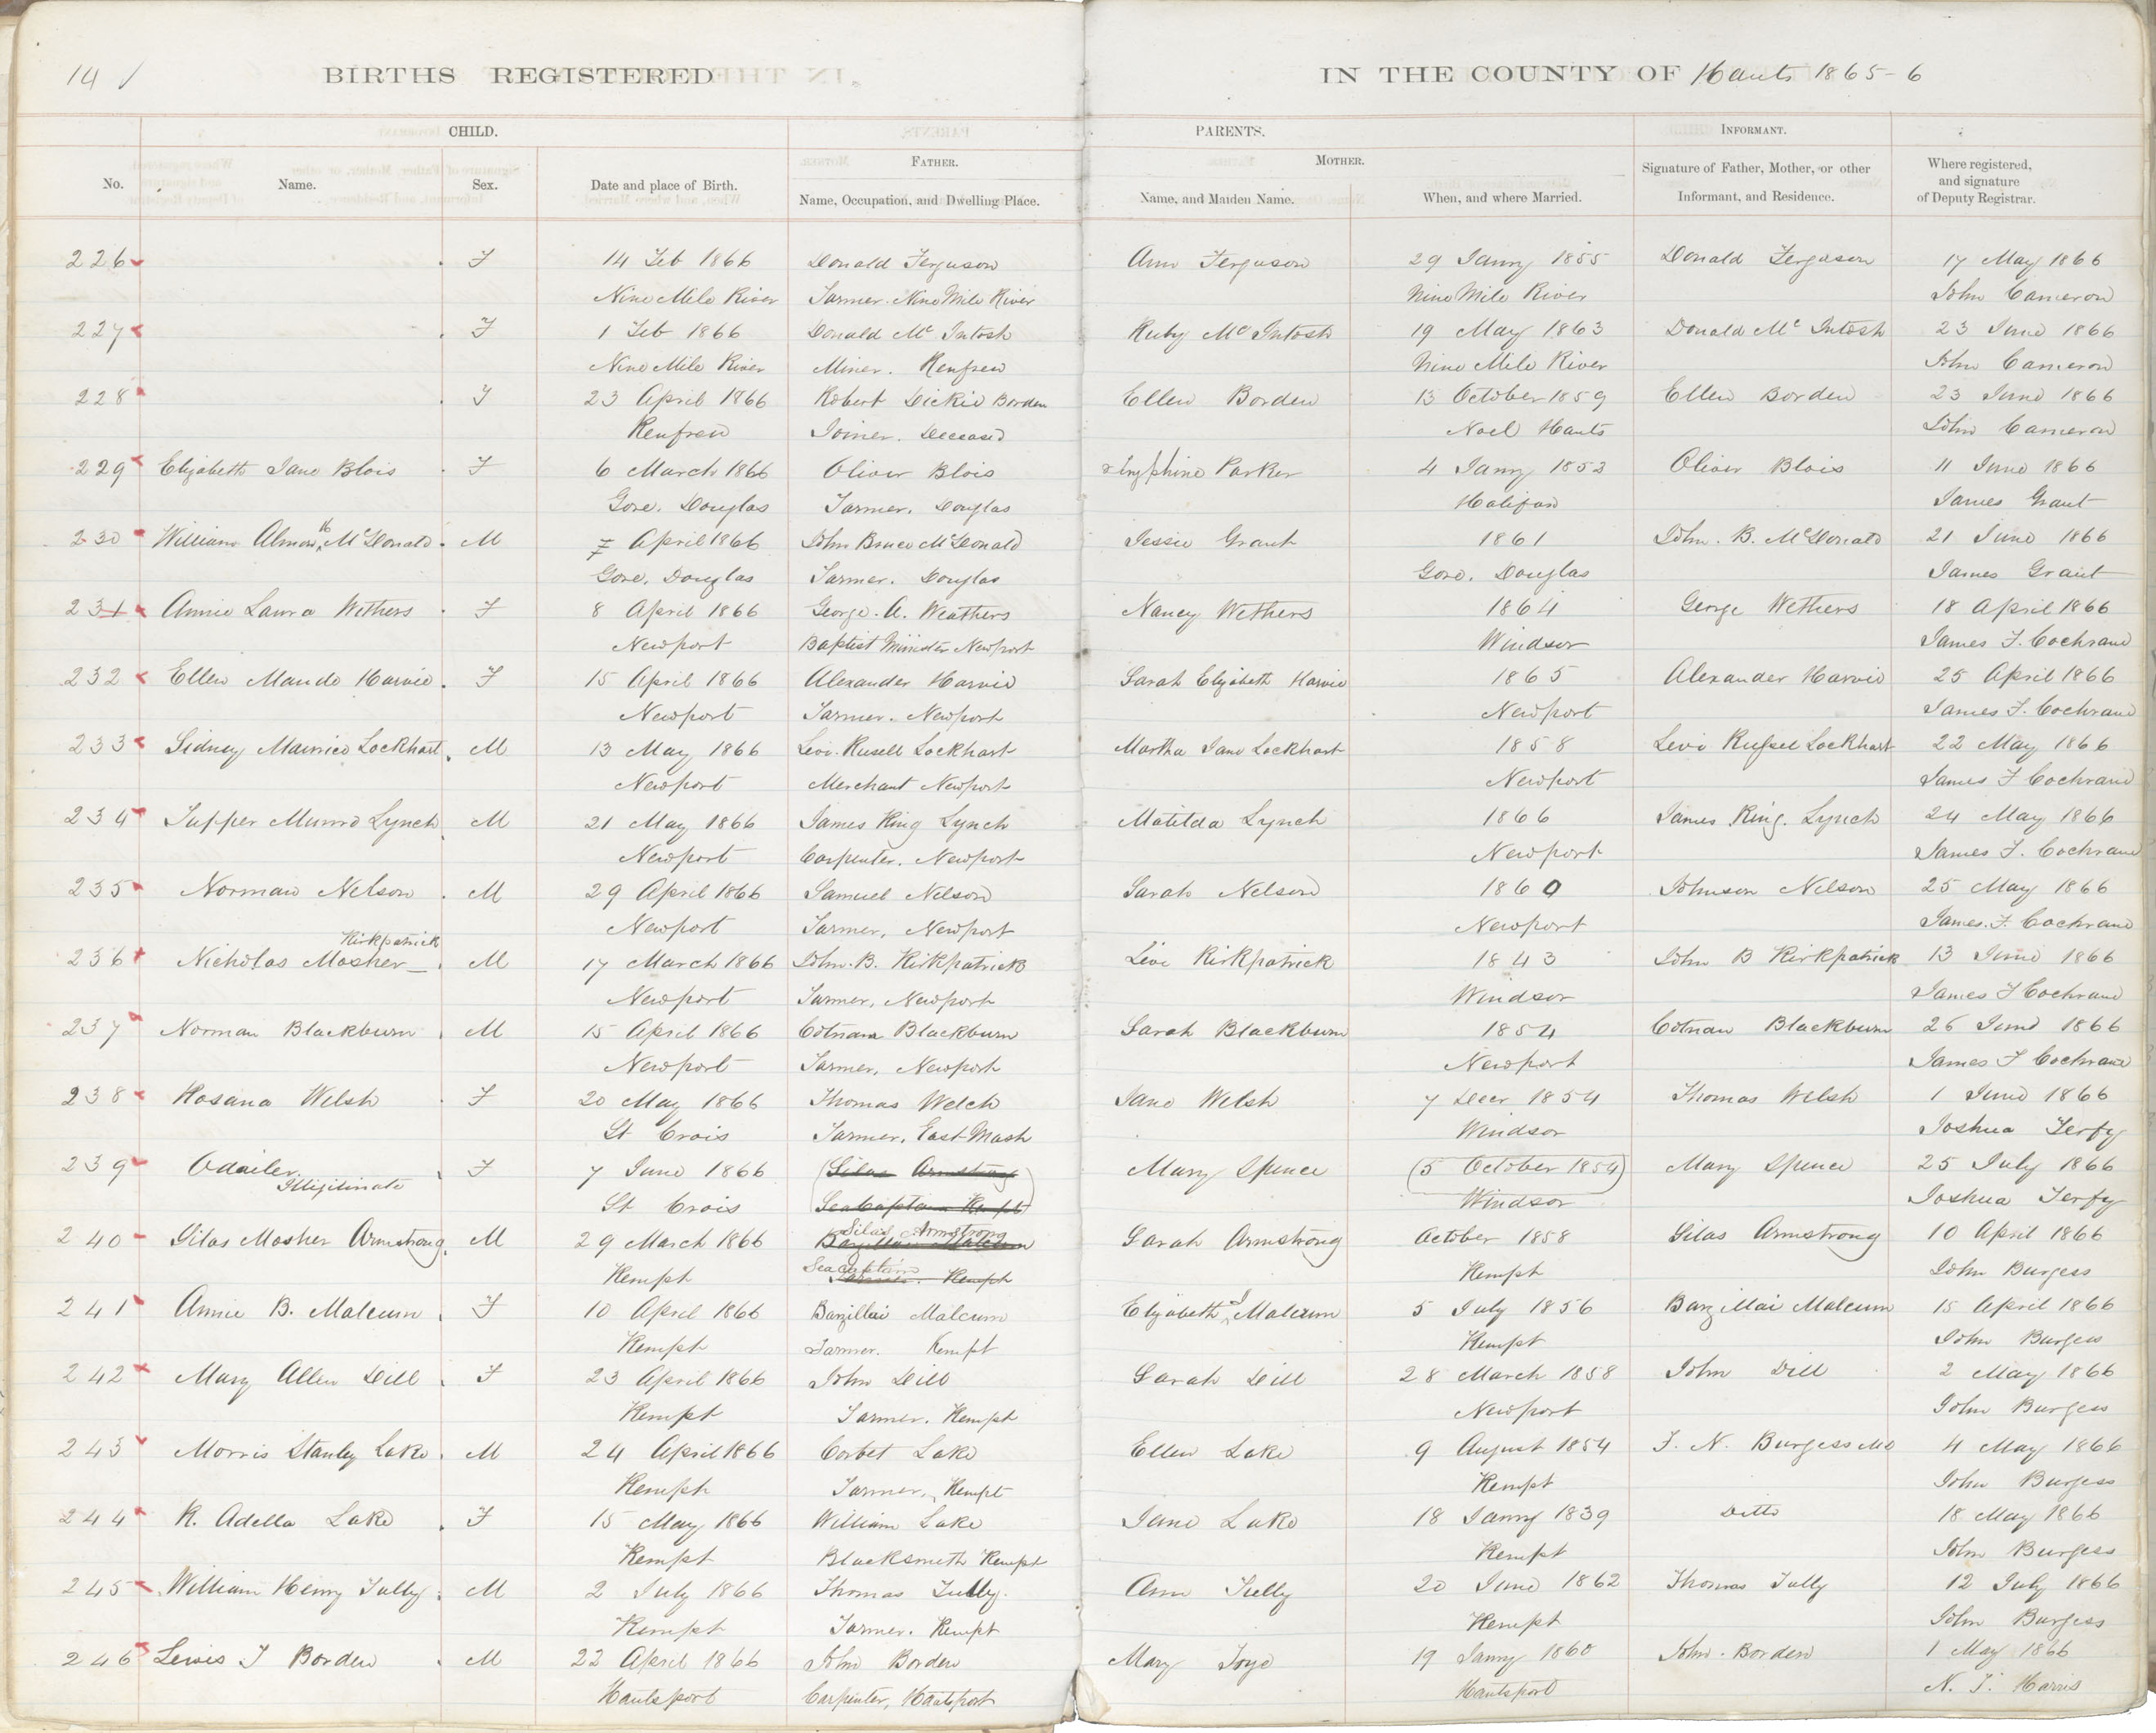 14
BIRTHS REGISTERED IN THE COUNTY OF Hants 1865-6
CHILD. PARENTS. INFORMANT.
No. Name. Sex. Date and place of Birth. FATHER. Name, Occupation, and Dwelling Place. MOTHER. Name, and Maiden Name. When, and where Married. Signature of Father, Mother, or other Informant, and Residence. Where registered, and signature of Deputy Registrar.
226 F 14 Feb 1866 Donald Ferguson Ann Ferguson 29 Janry 1855 Donald Ferguson 17 May 1866
Nine Mile River Farmer. Nine Mile River Nine Mile River John Cameron
227 F 1 Feb 1866 Donald Mc Intosh Ruby Mc Intosh 19 May 1863 Donald Mc Intosh 23 June 1866
Nine Mile River Miner. Renfrew Nine Mile River John Cameron
228 F 23 April 1866 Robert Dickie Borden Ellen Borden 13 October 1859 Ellen Borden 23 June 1866
Renfrew Joiner. Deceased Noel Hants John Cameron
229 Elizabeth Jane Blois F 6 March 1866 Oliver Blois Parker 4 Janry 1853 Oliver Blois 11 June 1866
Gore. Douglas Farmer. Douglas Halifax James Grant
230 William Almon H McDonald M 7 April 1866 John Bruce McDonald Jessie Grant 1861 John. B. McDonald 21 June 1866
Gore. Douglas Farmer. Douglas Gore. Douglas James Grant
231 Annie Laura Wethers F 8 April 1866 George. A. Weathers Nancy Wethers 1864 George Wethers 18 April 1866
Newport Baptist Minister Newport Windsor James F. Cochrane
232 Ellen Maude Harvie F 15 April 1866 Alexander Harvie Sarah Elizabeth Harvie 1865 Alexander Harvie 25 April 1866
Newport Farmer. Newport Newport James F. Cochrane
233 Sidney Maurice Lockhart M 13 May 1866 Levi Rusell Lockhart Martha Jane Lockhart 1858 Levi Russel Lockhart 22 May 1866
Newport Merchant Newport Newport James F Cochrane
234 Tupper Munro Lynch M 21 May 1866 James King Lynch Matilda Lynch 1866 James King. Lynch 24 May 1866
Newport Carpenter. Newport Newport James F. Cochrane
235 Norman Nelson M 29 April 1866 Samuel Nelson Sarah Nelson 1860 Johnson Nelson 25 May 1866
Newport Farmer. Newport Newport James. F. Cochrane
Kirkpatrick
236 Nicholas Mosher M 17 March 1866 John. B. Kirkpatrick Kirkpatrick 1843 John B Kirkpatrick 13 June 1866
Newport Farmer, Newport Windsor James F Cochrane
237 Norman Blackburn M 15 April 1866 Cotnam Blackburn Sarah Blackburn 1854 Cotnam Blackburn 26 June 1866
Newport Farmer, Newport Newport James F Cochrane
238 Rosana Welsh F 20 May 1866 Thomas Welch Jane Welsh 7 Decr 1854 Thomas Welsh 1 June 1866
St Croix Farmer. East Windsor Joshua
239 F 7 June 1866 (Silas Armstrong Mary Spence (5 October 1854) Mary Spence 25 July 1866
Illigitimate St Croix Sea Captain Kempt) Windsor Joshua
240 Silas Mosher Armstrong M 29 March 1866 Barzillai Malcum Silas Armstrong Sarah Armstrong October 1858 Silas Armstrong 10 April 1866
Kempt Sea captain Farmer. Kempt Kempt John Burgess
241 Annie B. Malcum F 10 April 1866 Barzillai Malcum Elizabeth J Malcum 5 July 1856 Barzillai Malcum 15 April 1866
Kempt Farmer. Kempt Kempt John Burgess
242 Mary Allen Dill F 23 April 1866 John Dill Sarah Dill 28 March 1858 John Dill 2 May 1866
Kempt Farmer. Kempt Newport John Burgess
243 Morris Stanley Lake M 24 April 1866 Corbet Lake Ellen Lake 9 August 1854 F. N. Burgess MD 4 May 1866
Kempt Farmer, Kempt Kempt John Burgess
244 R. Adella Lake F 15 May 1866 William Lake Jane Lake 18 Janry 1839 Ditto 18 May 1866
Kempt Blacksmith Kempt Kempt John Burgess
245 William Henry Tully M 2 July 1866 Thomas Tully. Ann Tully 20 June 1862 Thomas Tully 12 July 1866
Kempt Farmer. Kempt Kempt John Burgess
246 Lewis J Borden M 22 April 1866 John Borden Mary Toye 19 Janry 1860 John Borden 1 May 1866
Hantsport Carpenter, Hantsport Hantsport N. T. Harris